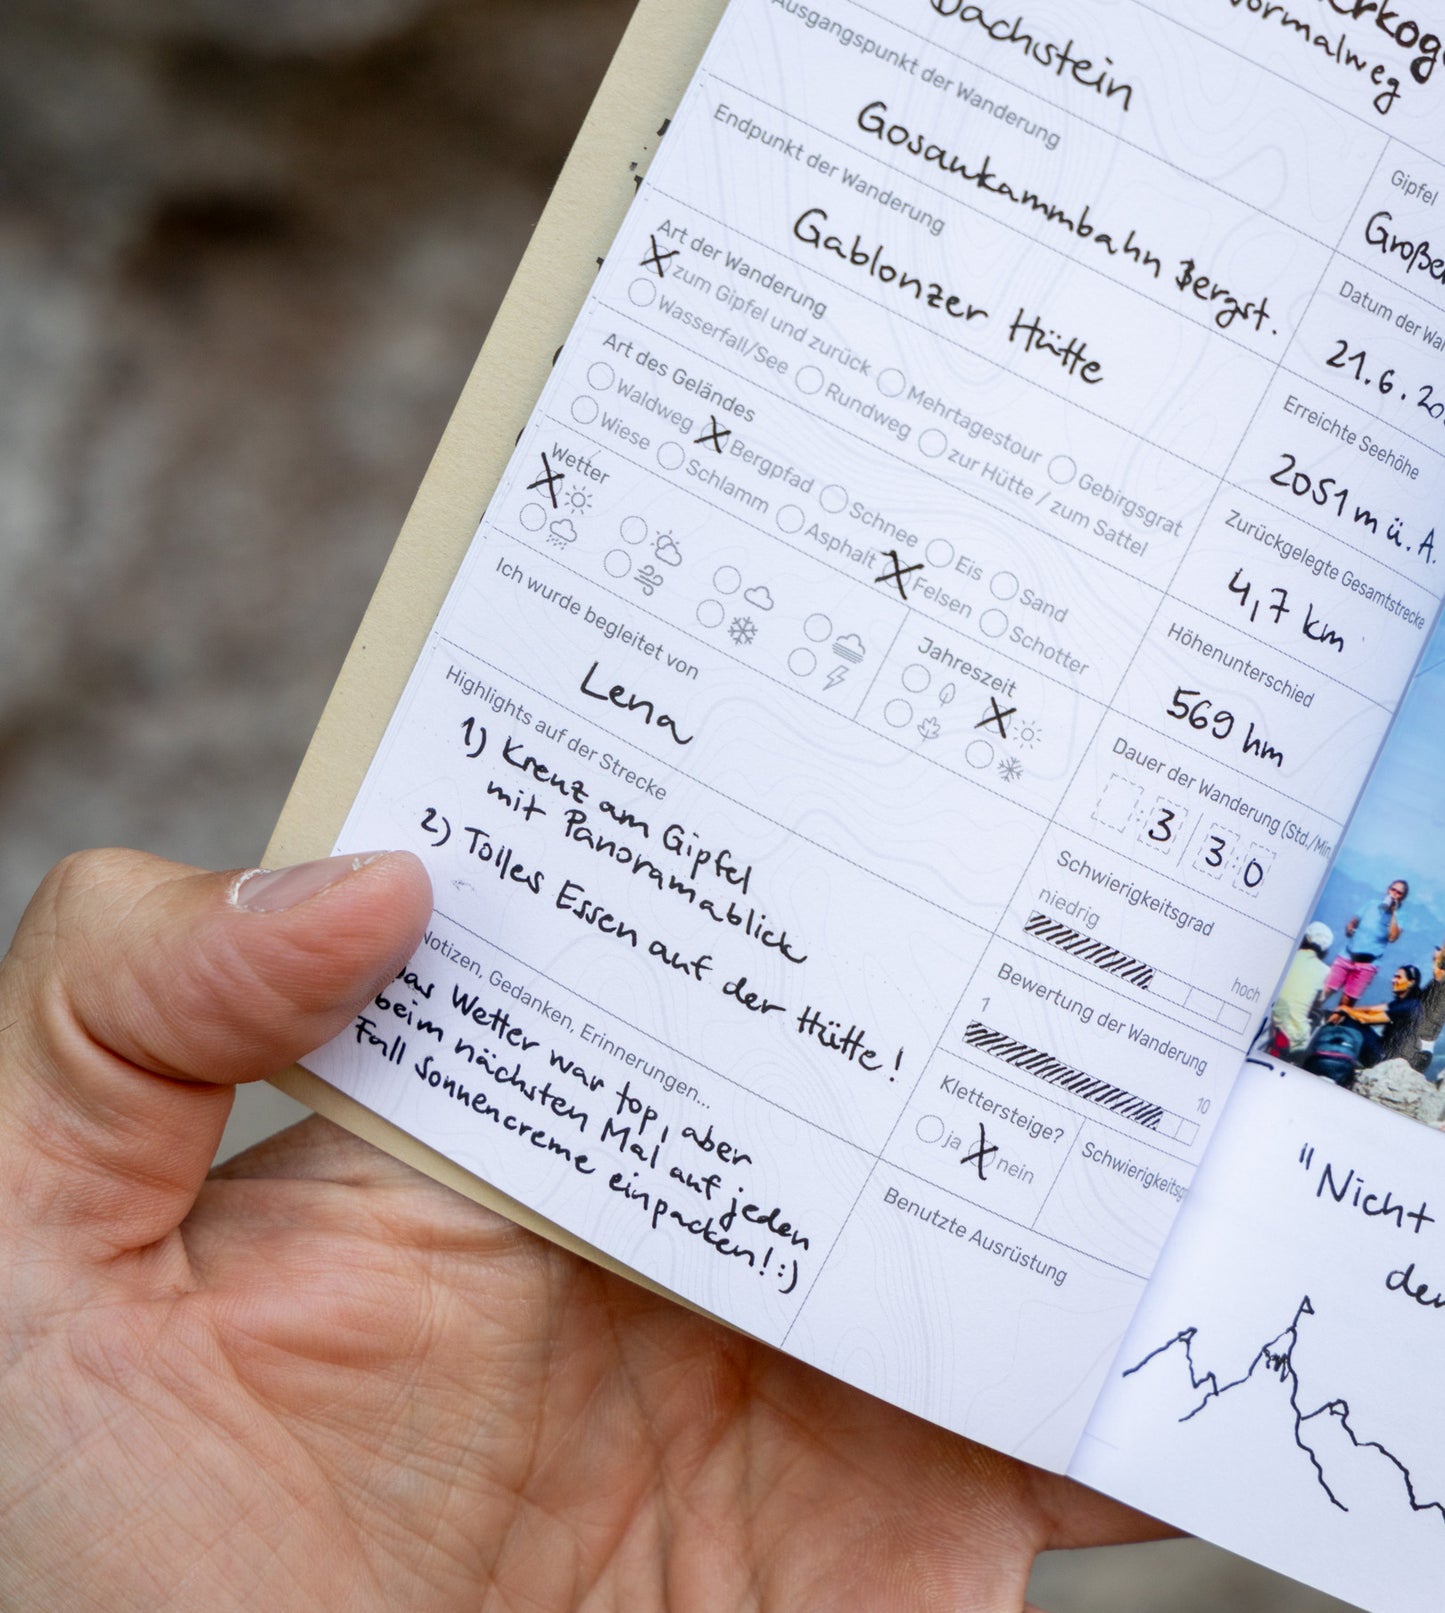 Normalweg
Dachstein
Ausgangspunkt der Wanderung
Gosaukammbahn Bergst.
Endpunkt der Wanderung
Gablonzer Hütte
Art der Wanderung
zum Gipfel und zurück Mehrtagestour Gebirgsgrat
Wasserfall/See Rundweg zur Hütte / zum Sattel
Art des Geländes
Waldweg Bergpfad Schnee Eis Sand
Wiese Schlamm Asphalt Felsen Schotter
Wetter
Jahreszeit
Ich wurde begleitet von
Lena
Highlights auf der Strecke
1) Kreuz am Gipfel
mit Panoramablick
2) Tolles Essen auf der Hütte!
Notizen, Gedanken, Erinnerungen...
Das Wetter war top, aber
beim nächsten Mal auf jeden
Fall Sonnencreme einpacken! :)
Gipfel
Große
Datum der
21.6.20
Erreichte Seehöhe
2051 m ü. A.
Zurückgelegte Gesamtstrecke
4,7 km
Höhenunterschied
569 hm
Dauer der Wanderung (Std./Min.
3 30
Schwierigkeitsgrad
niedrig hoch
Bewertung der Wanderung
1 10
Klettersteige?
ja nein
Schwierigkeitsg
Benutzte Ausrüstung
"Nicht